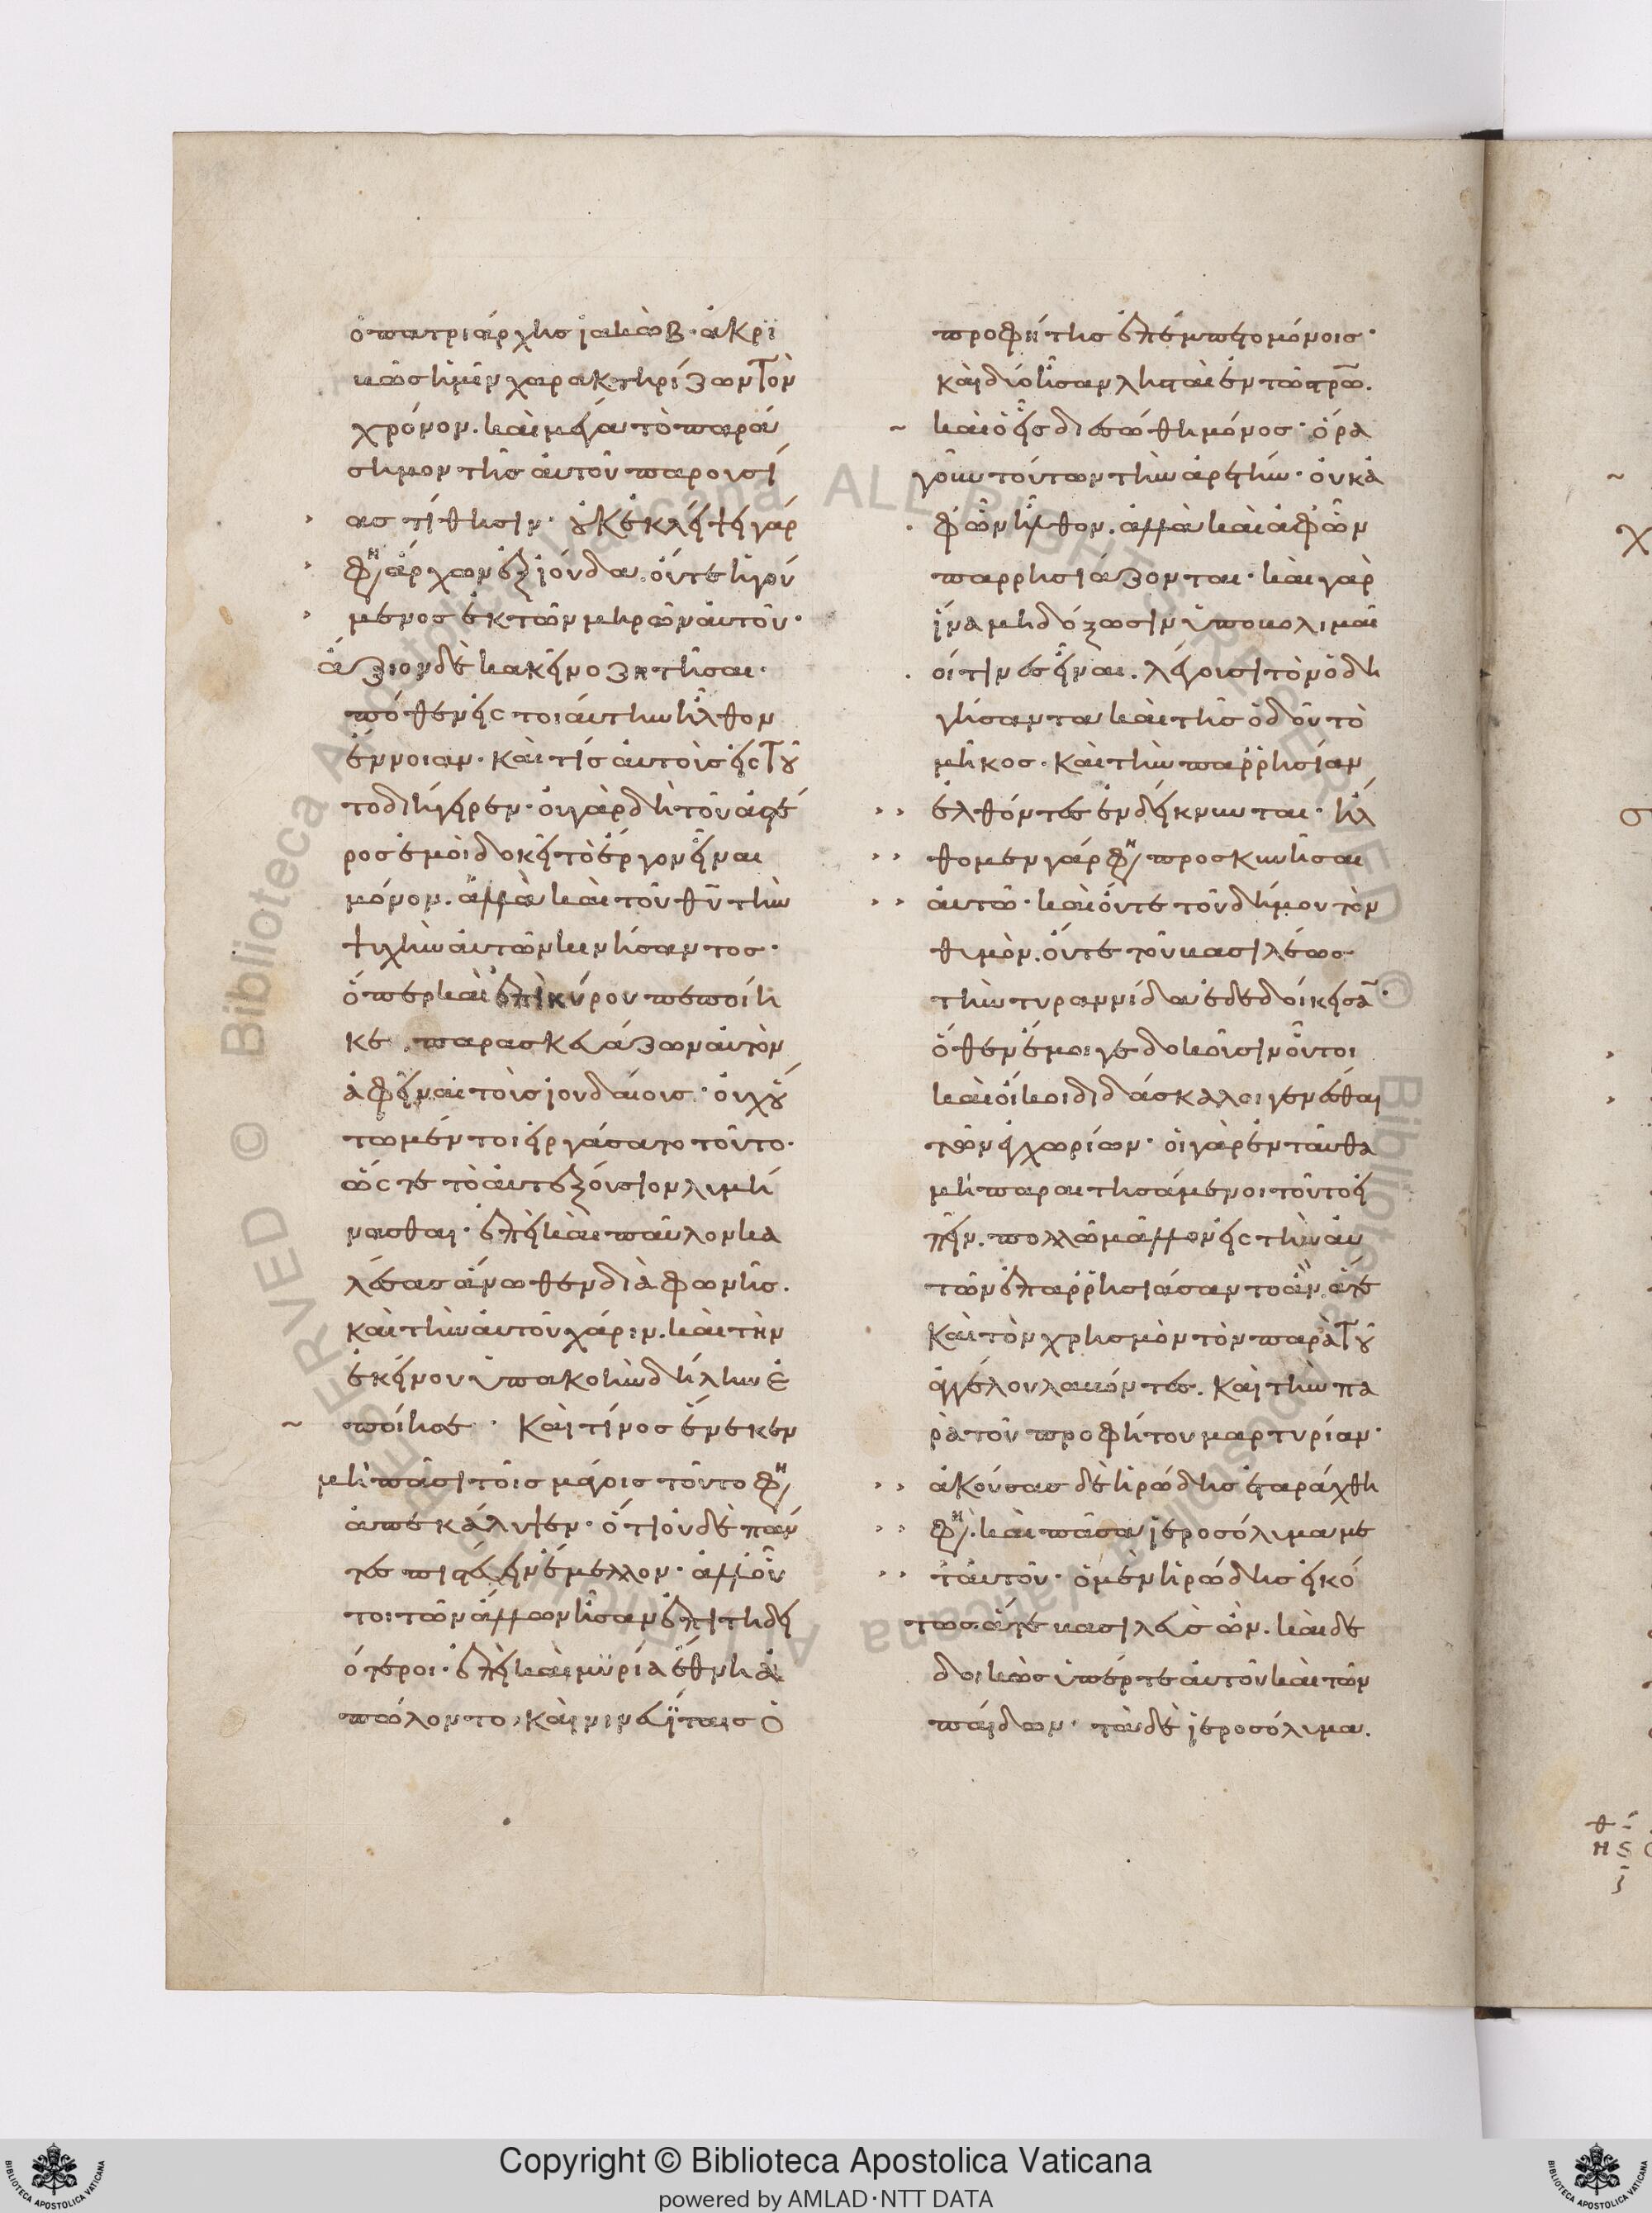 ὁ πατριάρχης ἰακὼβ· ἀκρι
βῶς ἡμῖν χαρακτηρίζων τὸν
χρόνον. καὶ μέγα τὸ παρά
σημον τῆς αὐτοῦ παρουσί
ας τίθησιν· οὐκ ἐκλείψει γάρ
φη ἄρχων ἐξ ἰούδα. οὔτε ἡγού
μενος ἐκ τῶν μηρῶν αὐτοῦ·
ἄξιον δὲ κακεῖνο ζητῆσαι·
πόθεν εἰς τοιαύτην ἦλθον
ἔννοιαν· καὶ τίς αὐτοὺς εἰς τοῦ
το διήγειρεν· οὐ γὰρ δὴ τοῦ ἀστέ
ρος ἐμοὶ δοκεῖ τὸ ἔργον εἶναι
μόνον. ἀλλὰ καὶ τοῦ θυ τὴν
ψυχὴν αὐτῶν κινήσαντος·
ὅπερ καὶ ἐπὶ κύρου πεποίη
κε παρασκευάζων αὐτὸν
ἀφεῖναι τοὺς ἰουδαίους· οὐχ οὕ
τω μέντοι εἰργάσατο τοῦτο·
ὥστε τὸ αὐτεξούσιον λυμή
νασθαι· ἐπεὶ καὶ παῦλον κα
λέσας ἄνωθεν διὰ φωνῆς.
καὶ τὴν αὐτοῦ χάριν. καὶ τὴν
ἐκείνου ὑπακοὴν δήλην ἐ
ποίησε· Καὶ τίνος ἕνεκεν
μὴ πᾶσι τοῖς μάγοις τοῦτο φη
ἀπεκάλυψεν· ὅτι οὐδὲ πάν
τες πιστεύειν ἔμελλον· ἀλλ' οὗ
τοι τῶν ἄλλων ἦσαν ἐπιτηδει
ότεροι· ἐπεὶ καὶ μυρία ἔθνη ἀ
πώλοντο, καὶ νινευΐταις ὁ
προφήτης ἐπέμπετο μόνοις·
καὶ δύο ἦσαν λησταὶ ἐν τῶ στρω.
καὶ ὁ εἷς διεσώθη μόνος· ὅρα
γοῦν τούτων τὴν ἀρετήν· οὐκ ἀ
φ' ὧν ἦλθον. ἀλλὰ καὶ ἀφ' ὧν
παρρησιάζονται· καὶ γὰρ
ἵνα μὴ δόξωσιν ὑποβολιμαῖ
οί τινες εἶναι. λέγουσι τὸν ὁδη
γήσαντα καὶ τῆς ὁδοῦ τὸ
μῆκος. καὶ τὴν παρρησίαν
ἐλθόντες ἐνδείκνυνται· ἤλ
θομεν γάρ φη προσκυνῆσαι
αὐτῶ· καὶ οὔτε τοῦ δήμου τὸν
θυμὸν. οὔτε τοῦ βασιλέως
τὴν τυραννίδα ἐδεδοίκεισα·
ὅθεν ἔμοιγε δοκοῦσιν οὗτοι
καὶ οἴκοι διδάσκαλοι γενέσθαι
τῶν ἐγχωρίων· οἱ γὰρ ἐνταῦθα
μὴ παραιτησάμενοι τοῦτο εἰ
πεῖν. πολλῶ μᾶλλον εἰς τὴν αὑ
τῶν ἐπαρρησιάσαντο ἂν ἅτε
καὶ τὸν χρησμὸν τὸν παρὰ τοῦ
ἀγγέλου λαβόντες. καὶ τὴν πα
ρὰ τοῦ προφήτου μαρτυρίαν·
ἀκούσας δὲ ἡρώδης ἐταράχθη
φη. καὶ πᾶσα ἱεροσόλυμα με
τ' αὐτοῦ· ὁ μὲν ἡρώδης εἰκό
τως ἅτε βασιλεὺς ὢν. καὶ δε
δοικὼς ὑπέρ τε αὐτοῦ καὶ τῶν
παίδων· τὰ δὲ ἱεροσόλυμα.
Copyright © Biblioteca Apostolica Vaticana
powered by AMLAD·NTT DATA